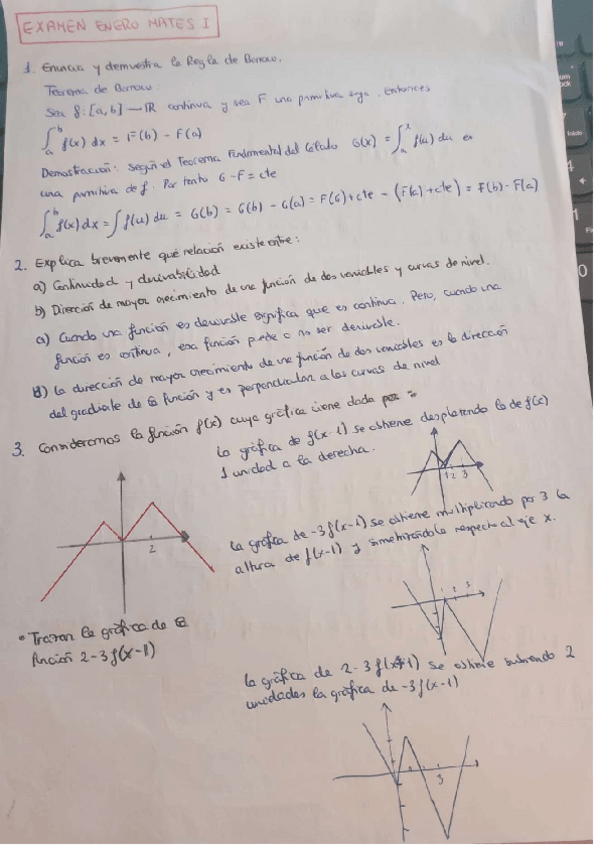 EXAMEN ENERO MATES I
1. Enuncia y demuestra la Regla de Barrow.
Teorema de Barrow:
Sea f: [a, b] → IR continua y sea F una primitiva suya. Entonces
∫ₐᵇ f(x) dx = F(b) - F(a)
Demostración: Según el Teorema Fundamental del Cálculo G(x) = ∫ₐˣ f(u) du es
una primitiva de f. Por tanto G - F = cte
∫ₐᵇ f(x) dx = ∫ f(u) du = G(b) = G(b) - G(a) = F(b) + cte - (F(a) + cte) = F(b) - F(a)
2. Explica brevemente qué relación existe entre:
a) Continuidad y derivabilidad
b) Dirección de mayor crecimiento de una función de dos variables y curvas de nivel.
a) Cuando una función es derivable significa que es continua. Pero, cuando una
función es continua, esa función puede o no ser derivable.
b) La dirección de mayor crecimiento de una función de dos variables es la dirección
del gradiente de la función y es perpendicular a las curvas de nivel
3. Consideramos la función f(x) cuya gráfica viene dada por:
2
• Trazar la gráfica de la
función 2-3f(x-1)
La gráfica de f(x-1) se obtiene desplazando la de f(x)
1 unidad a la derecha.
1 2 3
La gráfica de -3f(x-1) se obtiene multiplicando por 3 la
altura de f(x-1) y simetrizándola respecto al eje x.
1 2 3
La gráfica de 2-3f(x-1) se obtiene subiendo 2
unidades la gráfica de -3f(x-1)
3